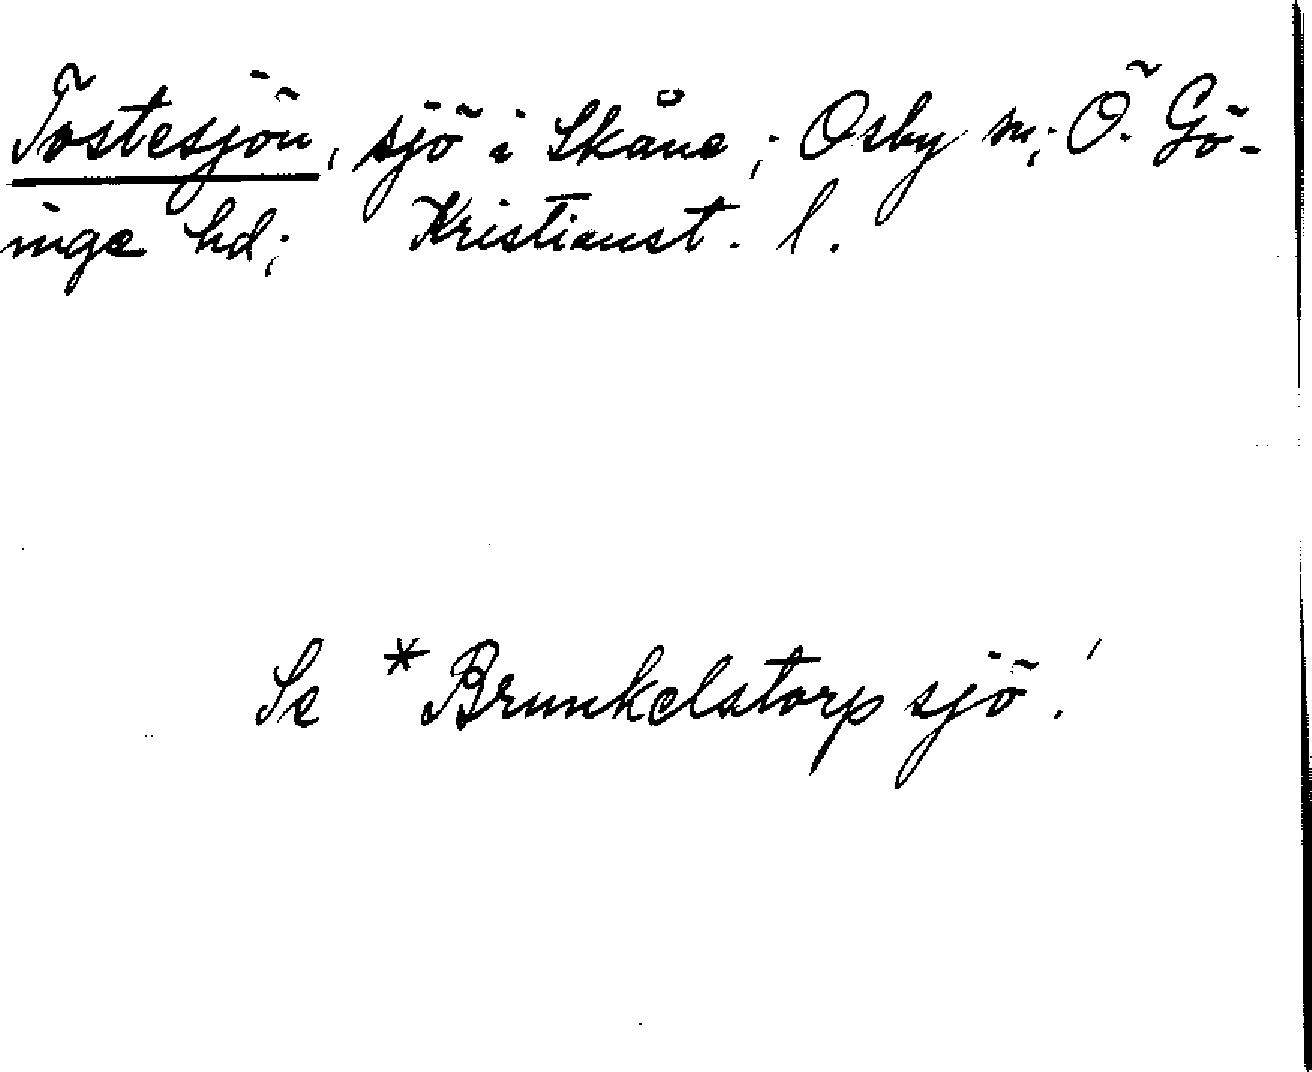 Tostesjön, sjö i Skåne; Osby sn; Ö. Gö-
inge hd; Kristianst. l.
Se *Brunkelstorp sjö!